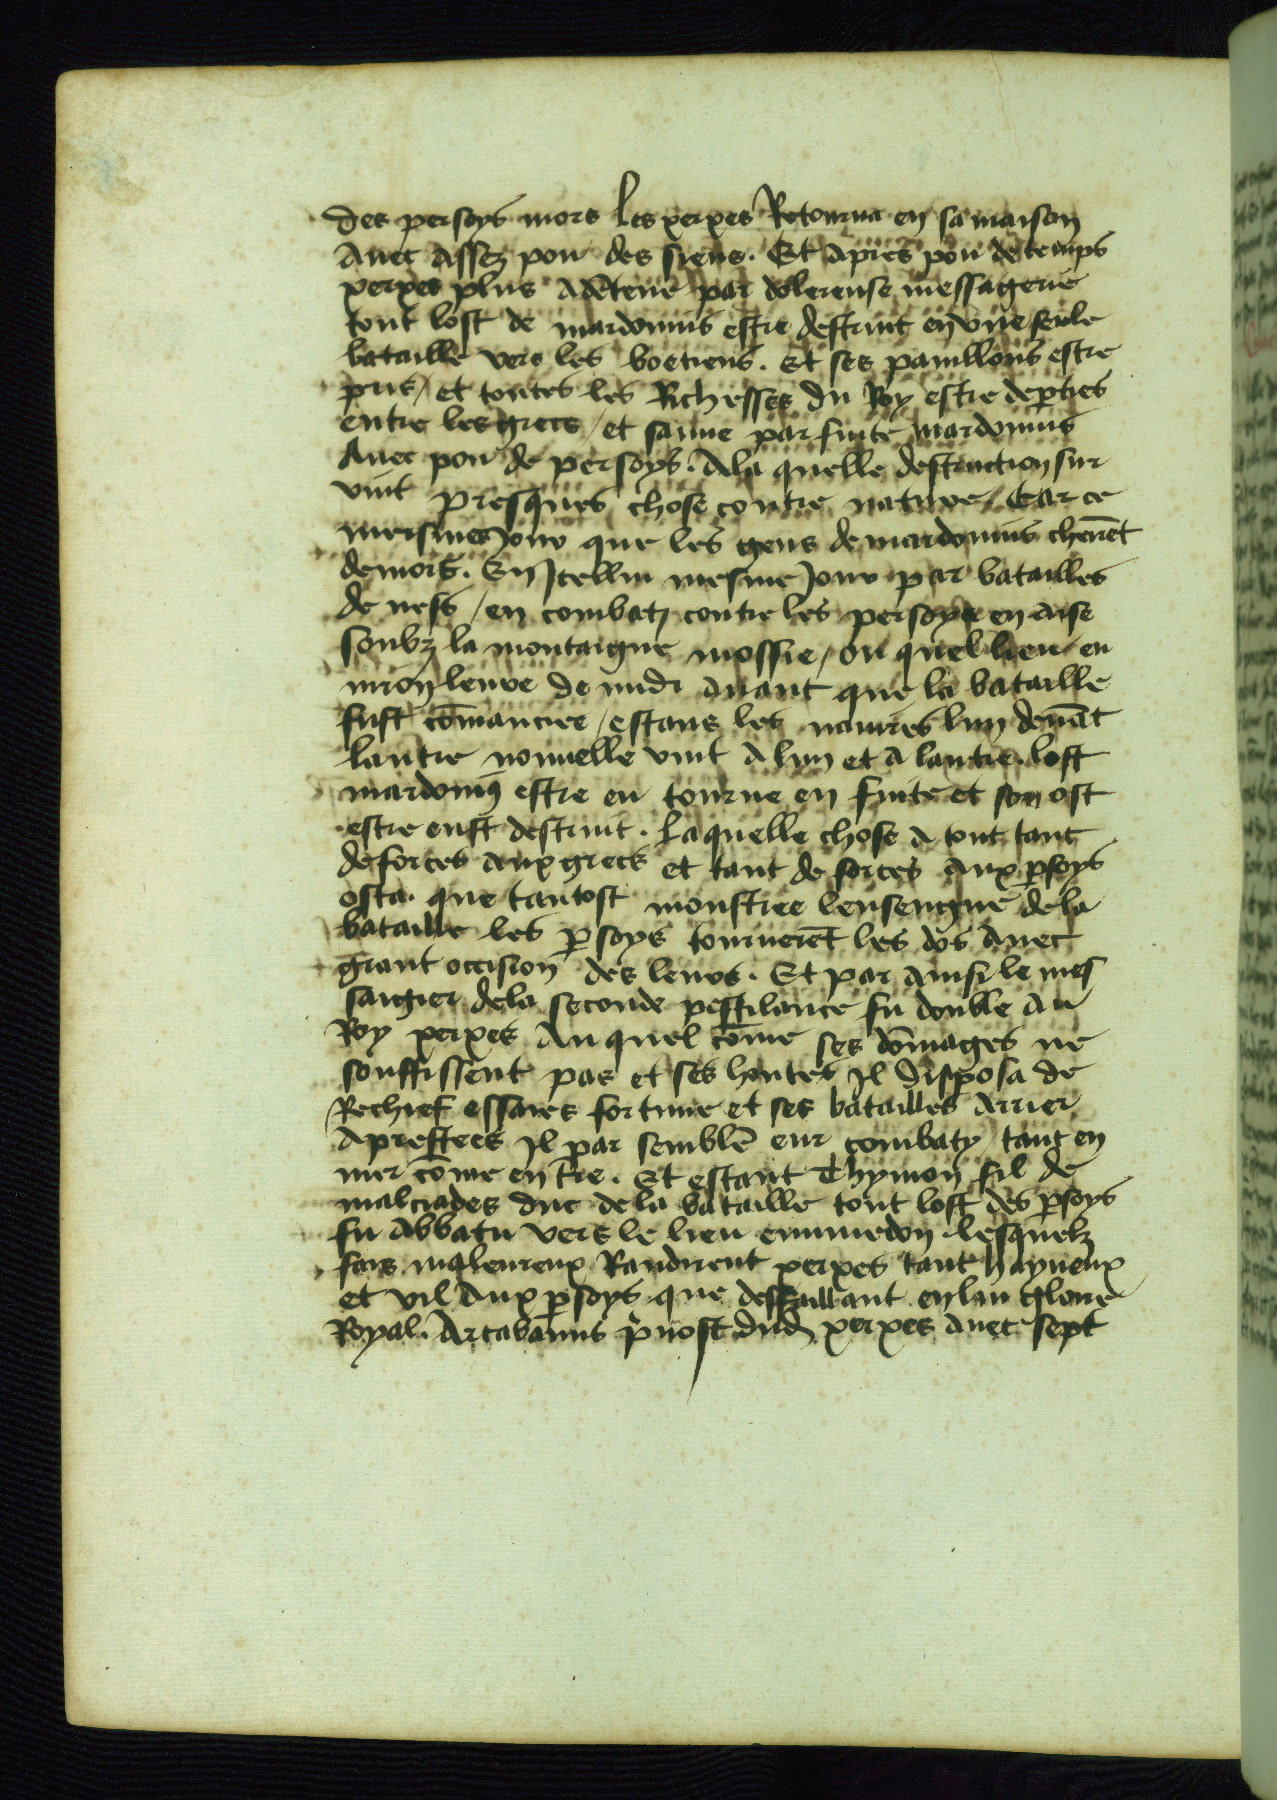 des persoys mors Les xerxes Retourna en sa maison
Avec Assez pou des siens. Et Apres pou de temps
xerxes plus Adcetene par dolereuse messagerie
tout lost de mardonius estre destruit en une seule
bataille vers les boetiens. Et ses pauillons estre
pris / et toutes les Richesses du Roy estre dep̄ties
entre les grecs / et sauue par fuite mardonius
Auec pou de persoys. A la quelle destruction sur
vint presques chose contre nature. Car ce
meismes Jour que les gens de mardonius cheurēt
de mors. En Jcelluy mesme Jour par batailles
de nefs / en combatz contre les persoys en aise
soubz la montaigne mossie / ou quel lieu en
uiron leure de midi auant que la bataille
fust cōmanciee / estans les nauires lun deuāt
lautre nouuelle vint A lun et A lautre. lost
mardoniꝰ estre en tourne en fuite et son ost
estre eust destruit. Laquelle chose A tout tant
de forces aux grecs et tant de forces Aux p̄soys
osta. que tantost monstree lenseingne de la
bataille les p̄soys tournerēt les dos Auec
grant occision des leurs. Et par Ainsi le mes
saigier de la seconde pestilance fu double Au
Roy xerxes Au quel cōme ses dōmages ne
souffissent pas et ses hontes Jl disposa de
Rechief essaies fortune et ses batailles Arrier
Aprestees Jl par semblē eur combaty / tant en
mer cōme en tre. Et estant Thymon fil de
malciades duc de la bataille tout lost des p̄soys
fu Abbatu vers le lieu eumiedon. lesquelz
fais maleureux Randirent xerxes tant hayneux
et vil Aux p̄soys que deffaillant en lui gloire
Royal. Artabanus p̄uost dud xerxes auec sept